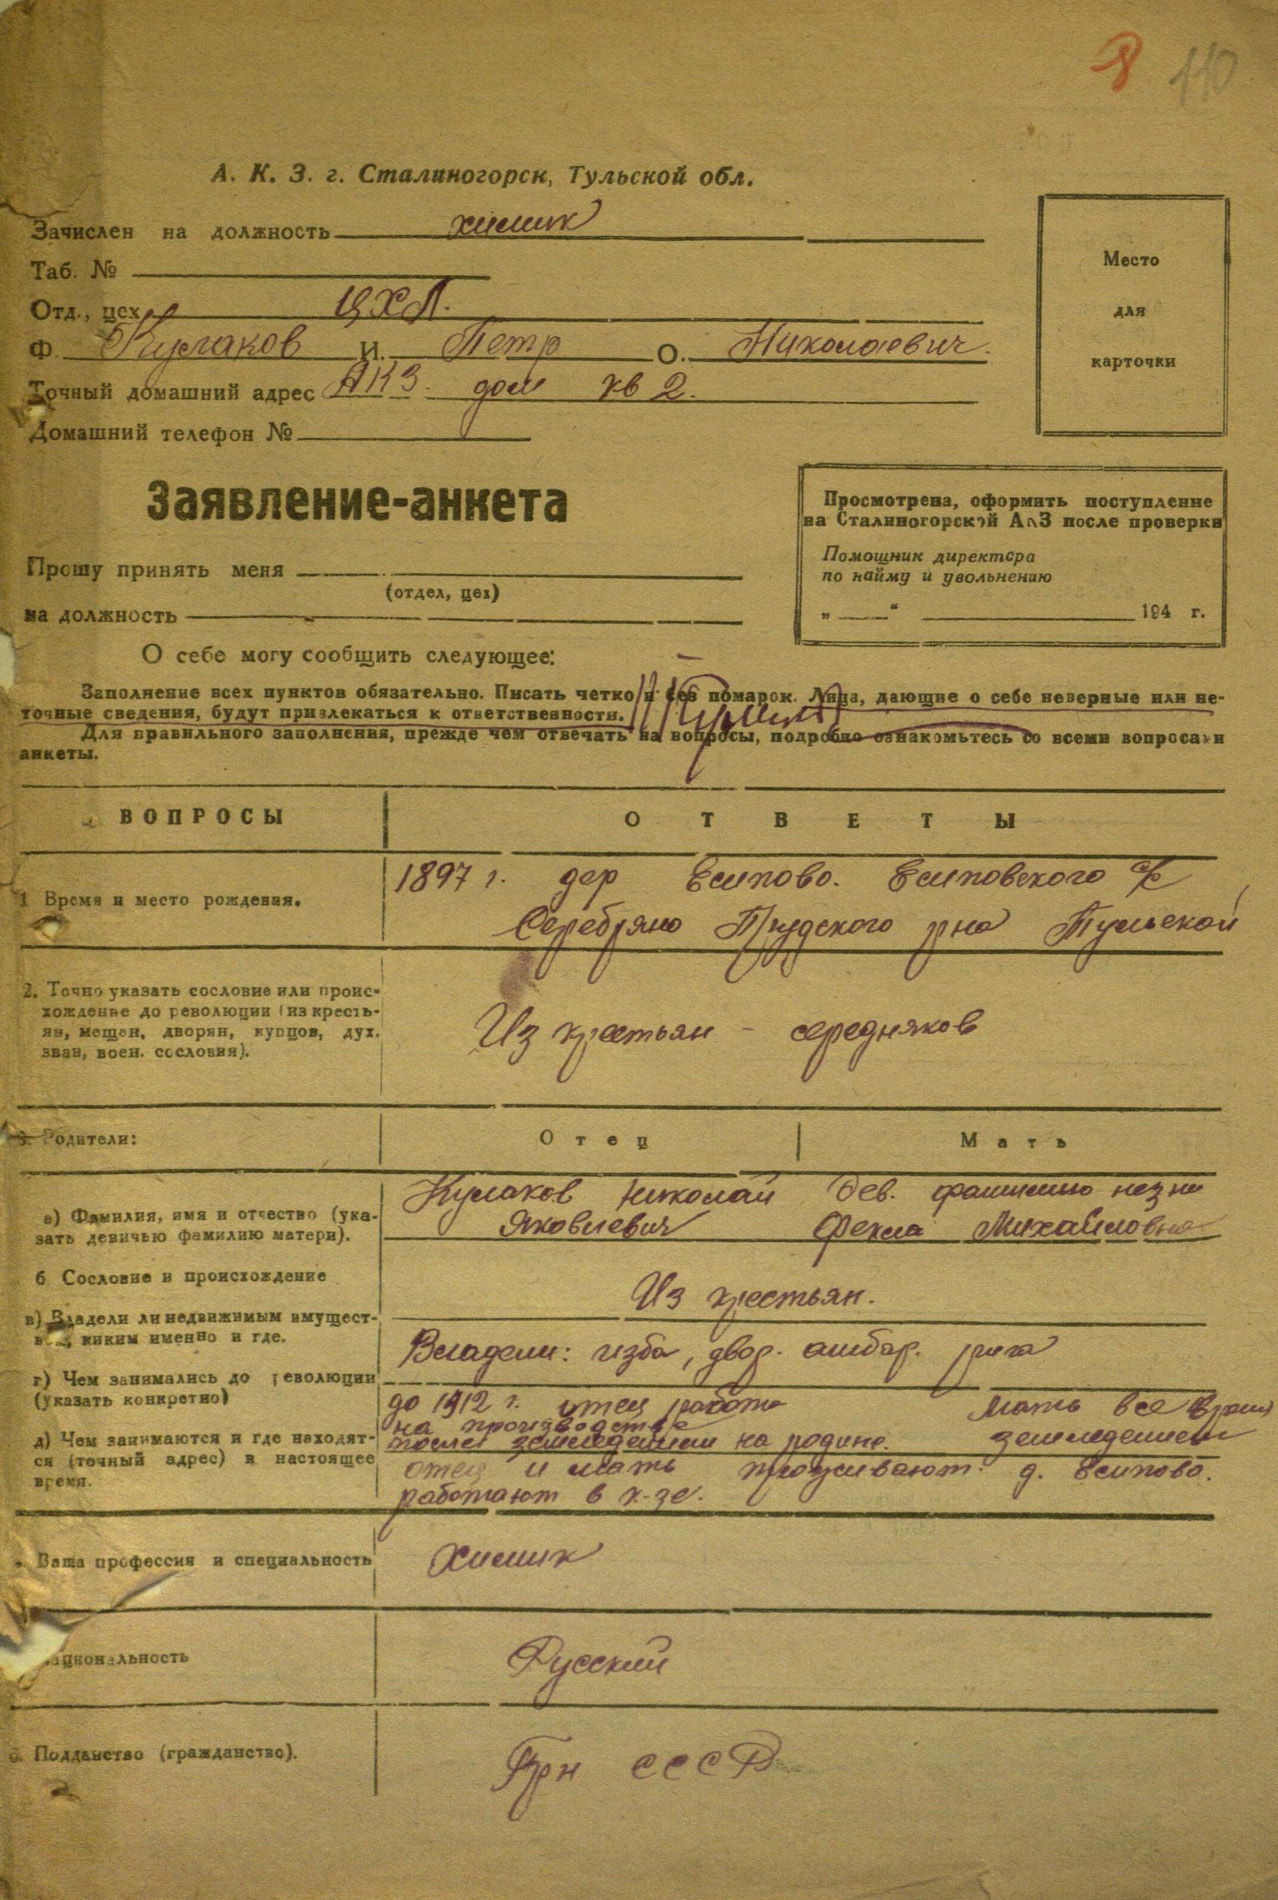 8 110
А. К. З. г. Сталиногорск, Тульской обл.
Зачислен на должность химик
Таб. №
Отд., цех ЦХЛ.
Ф. Кулаков И. Петр О. Николаевич.
Точный домашний адрес АКЗ. дом кв 2.
Домашний телефон №
Место
для
карточки
Заявление-анкета
Прошу принять меня
(отдел, цех)
на должность
Просмотрена, оформить поступление
на Сталиногорской АКЗ после проверки
Помощник директора
по найму и увольнению
„ “ 194 г.
О себе могу сообщить следующее:
Заполнение всех пунктов обязательно. Писать четко и без помарок. Лица, дающие о себе неверные или не-
точные сведения, будут привлекаться к ответственности.
Для правильного заполнения, прежде чем отвечать на вопросы, подробно ознакомьтесь со всеми вопросами
анкеты.
ВОПРОСЫ
ОТВЕТЫ
1 Время и место рождения.
1897 г. дер Есипово. Есиповского с/с
Серебряно Прудского рна Тульской
2. Точно указать сословие или проис-
хождение до революции (из кресть-
ян, мещан, дворян, купцов, дух.
зван, воен. сословия).
Из крестьян - середняков
3. Родители:
Отец
Мать
а) Фамилия, имя и отчество (ука-
зать девичью фамилию матери).
Кулаков Николай
Яковлевич
Дев. фамилию незню
Фекла Михайловна
б Сословие и происхождение
Из крестьян.
в) Владели ли недвижимым имущест-
вом, каким именно и где.
Владели: изба, двор. амбар. рига
г) Чем занимались до революции
(указать конкретно)
до 1912 г. отец работа
на производстве
после земледелием на родине.
Мать все время
земледелием
д) Чем занимаются и где находят-
ся (точный адрес) в настоящее
время.
отец и мать проживают д. Есипово.
работают в к-зе.
Ваша профессия и специальность
химик
национальность
Русский
6. Подданство (гражданство).
Грн СССР